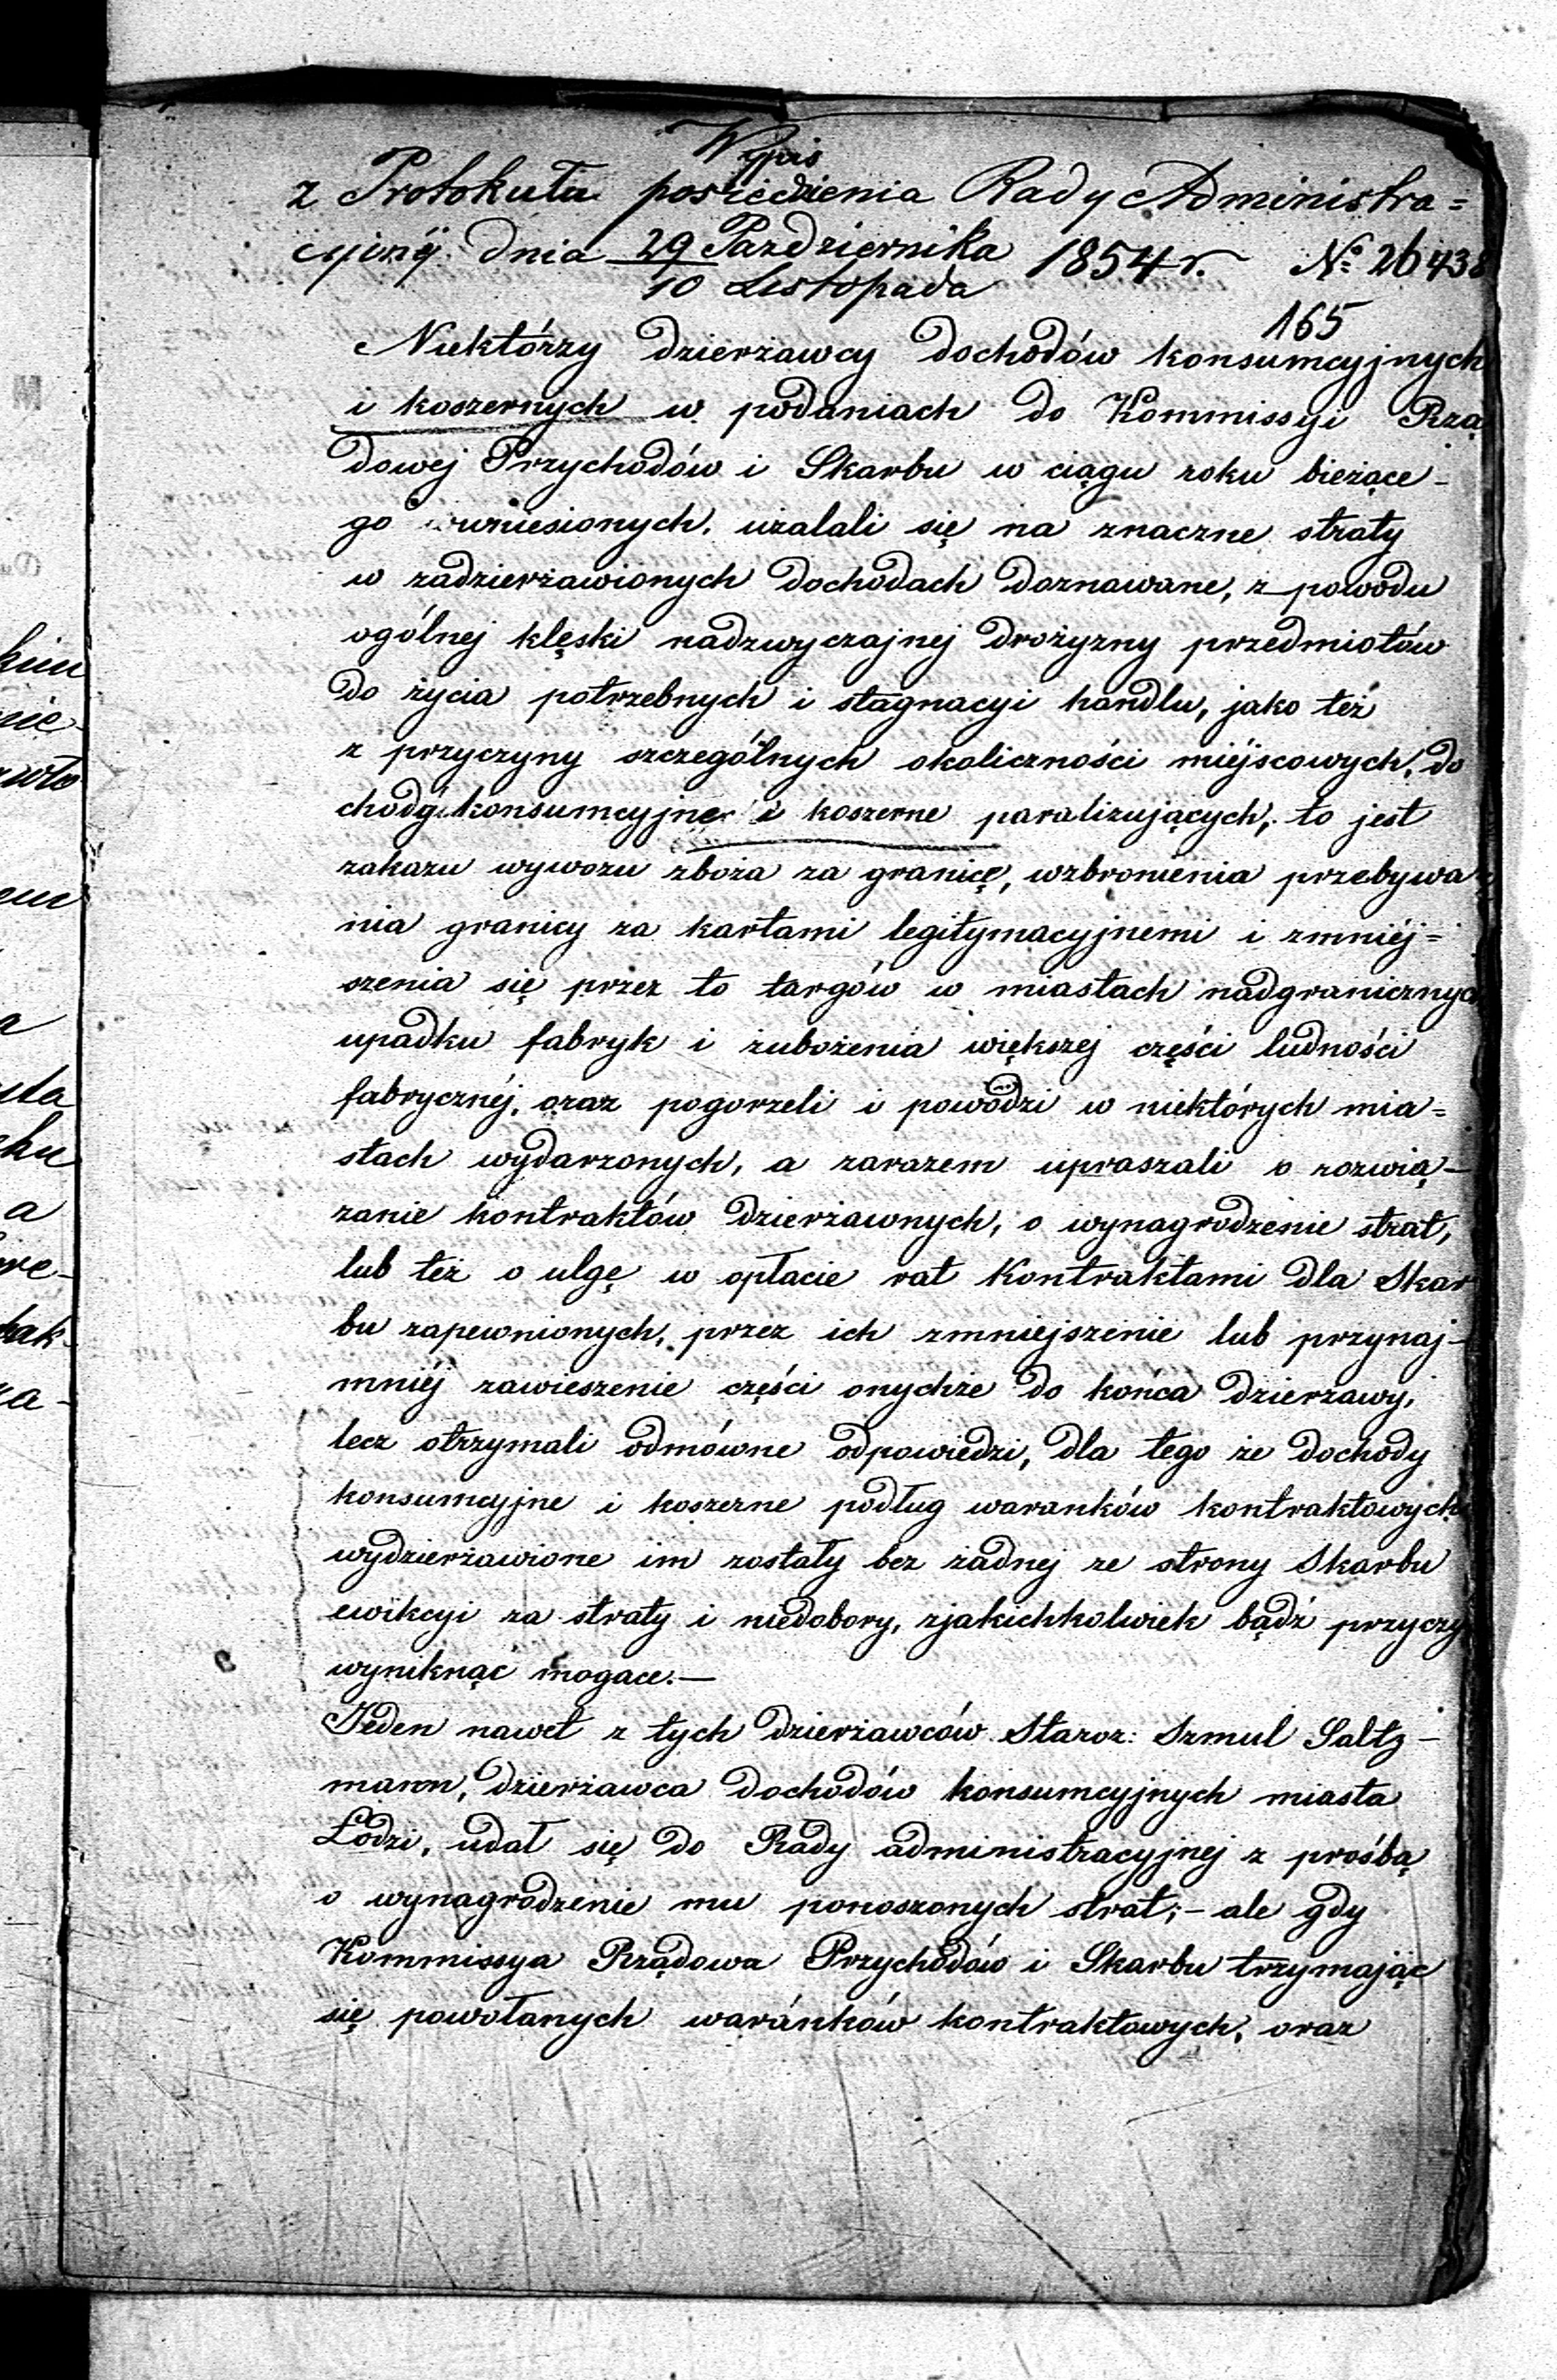 Wypis
z Protokułu posiedzienia Rady Administra=
cyjnéj dnia 29 Pazdziernika 1854 r. № 26438
10 Listopada
165
Niektórzy dzierżawcy dochodów konsumcyjnych
i koszernych w podaniach do Kommissyi Rzą
dowej Przychodów i Skarbu w ciągu roku bieżące-
go wniesionych, użalali się na znaczne straty
w zadzierżawionych dochodach doznawane, z powodu
ogólnej klęski nadzwyczajnej drożyzny przedmiotów
do życia potrzebnych i stagnacyi handlu, jako też
z przyczyny szczególnych okoliczności miéjscowych, do
chody konsumcyjne i koszerne paraliżujących, to jest
zakazu wywozu zboża za granicę, wzbronienia przebywa
nia granicy za kartami legitymacyjnemi i zmniéj=
szenia się przez to targów w miastach nadgranicznych
upadku fabryk i zubożenia większej części ludności
fabrycznéj, oraz pogorzeli i powodzi w niektórych mia=
stach wydarzonych, a zarazem upraszali o rozwią-
zanie kontraktów dzierżawnych, o wynagrodzenie strat,
lub też o ulgę w opłacie rat Kontraktami dla Skar
bu zapewnionych, przez ich zmniejszenie lub przynaj-
mniéj zawieszenie części onychże do końca dzierżawy,
lecz otrzymali odmówne odpowiedzi, dla tego że dochody
konsumcyjne i koszerne podług waranków kontraktowych
wydzierżawione im zostały bez żadnej ze strony Skarbu
ewikcyi za straty i niedobory, zjakichkolwiek bądź przyczy
wyniknąć mogace.—
Jeden nawet z tych dzierżawców Staroz: Szmul Saltz-
mann, dzierżawca dochodów konsumcyjnych miasta
Łodzi, udał się do Rady administracyjnej z prośbą
o wynagrodzenie mu ponoszonych strat;- ale gdy
Kommissya Rządowa Przychodów i Skarbu trzymając
się powołanych waránków kontraktowych, oraz